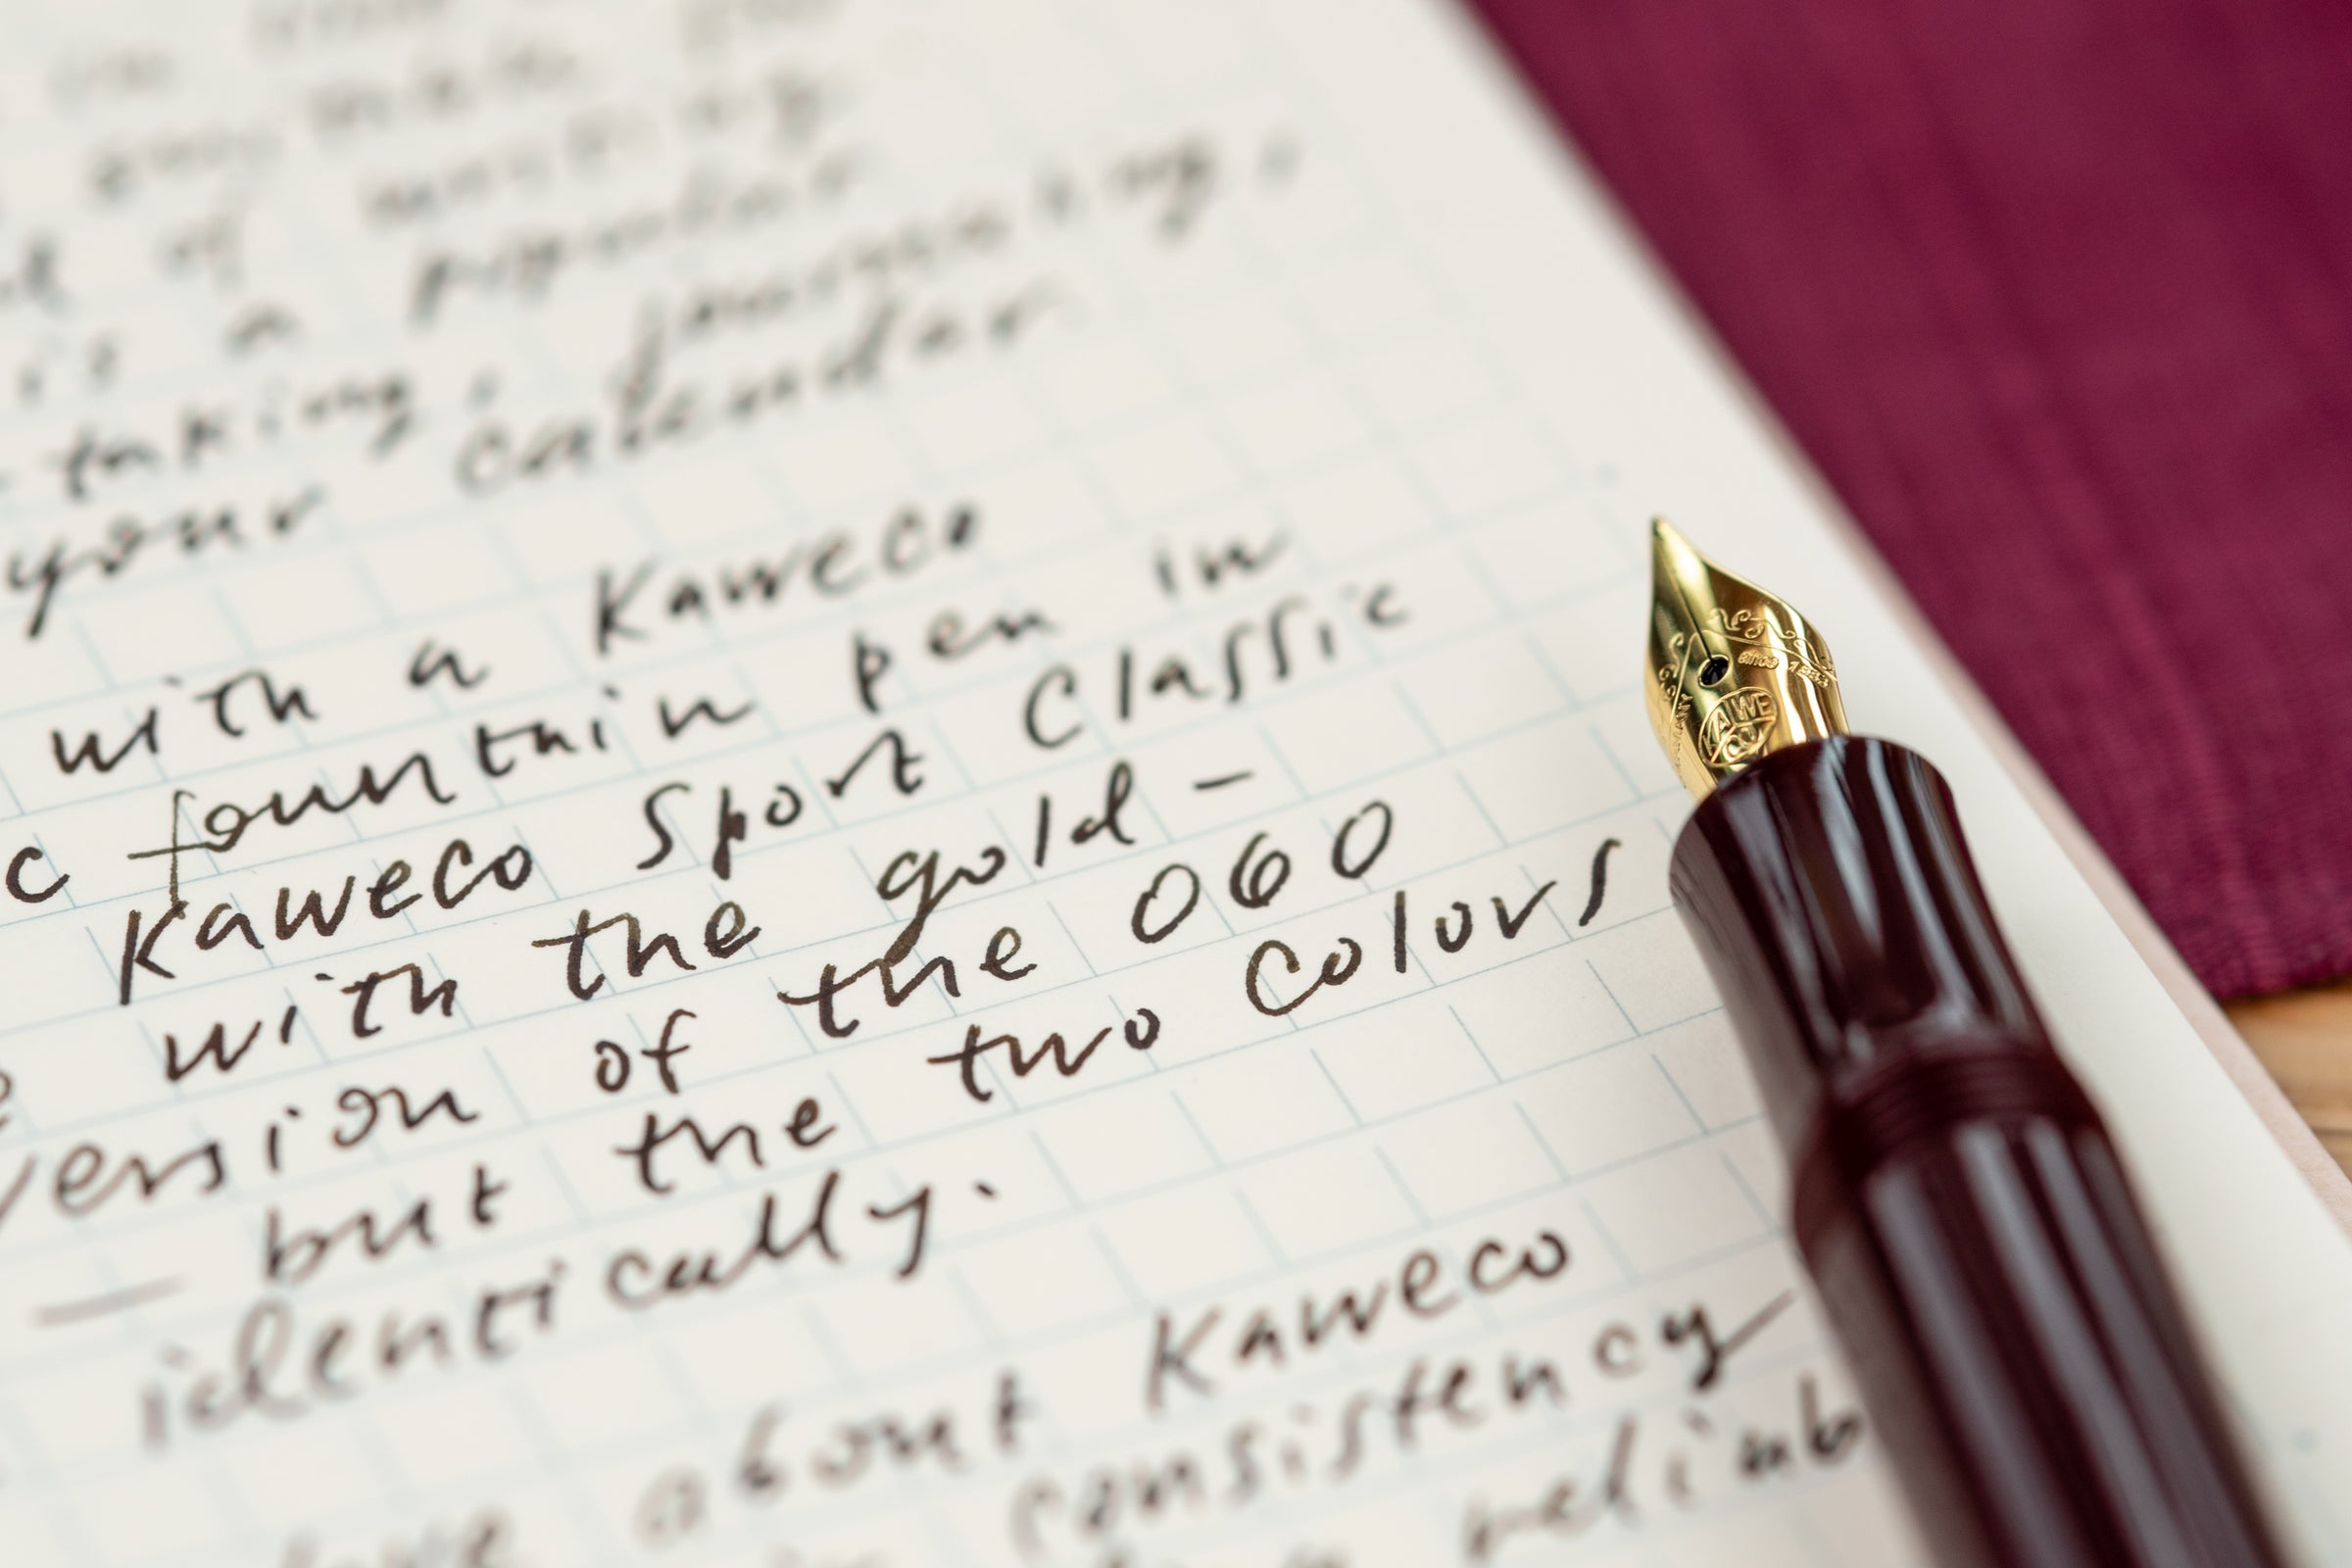 of most
is a popular
taking, journaling,
your calendar
with a Kaweco
c fountain pen in
Kaweco Sport Classic
with the gold-
version of the 060
— but the two colors
identically.
about Kaweco
consistency
reliab
KAWE
CO
anno 1883